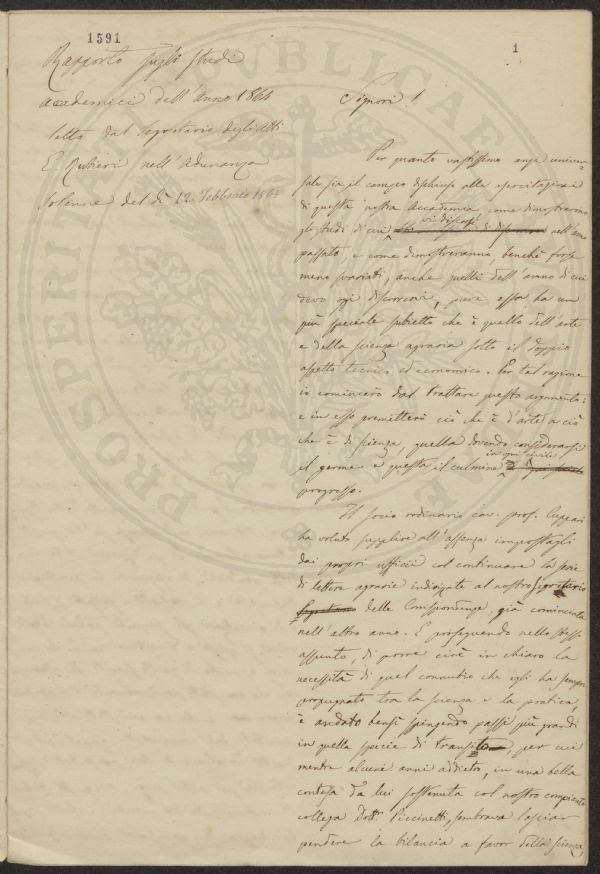 1591
1
Rapporto sugli studi
accademici dell'Anno 1864
letto dal Segretario degli Atti
E. Rubieri nell'Adunanza
solenne del dì 12 Febbraio 1865
Signori!
Per quanto vastissimo anzi univer-
sale sia il campo dischiuso alle esercitazioni
di questa nostra Accademia come dimostrarono
gli studi di cui vi discorsi nell'anno
passato, e come dimostreranno, benché forse
meno svariati, anche quelli dell'anno di cui
devo oggi discorrervi, pure essa ha un
più speciale subietto che è quello dell'arte
e della scienza agraria sotto il doppio
aspetto tecnico ed economico. Per tal ragione
io comincerò dal trattare questo argomento:
e in esso premetterò ciò che è d'arte a ciò
che è di scienza, quella dovendo considerarsi
il germe e questa il culmine in ogni civile
progresso.
Il socio ordinario cav. prof. Cuppari
ha voluto supplire all'assenza impostagli
dai propri ufficii col continuare la serie
di lettere agrarie indirizzate al nostro Segretario
Segretario delle Corrispondenze, già cominciata
nell'altro anno. E proseguendo nello stesso
assunto, di porre cioè in chiaro la
necessità di quel connubio che egli ha sempre
propugnato tra la scienza e la pratica,
è andato bensì spingendo passi più grandi
in quella specie di transito, per cui
mentre alcuni anni addietro, in una bella
contesa da lui sostenuta col nostro compianto
collega Dott. Piccinetti, sembrava lasciar
pendere la bilancia a favor della scienza,
PROSPERI
PUBLICAE